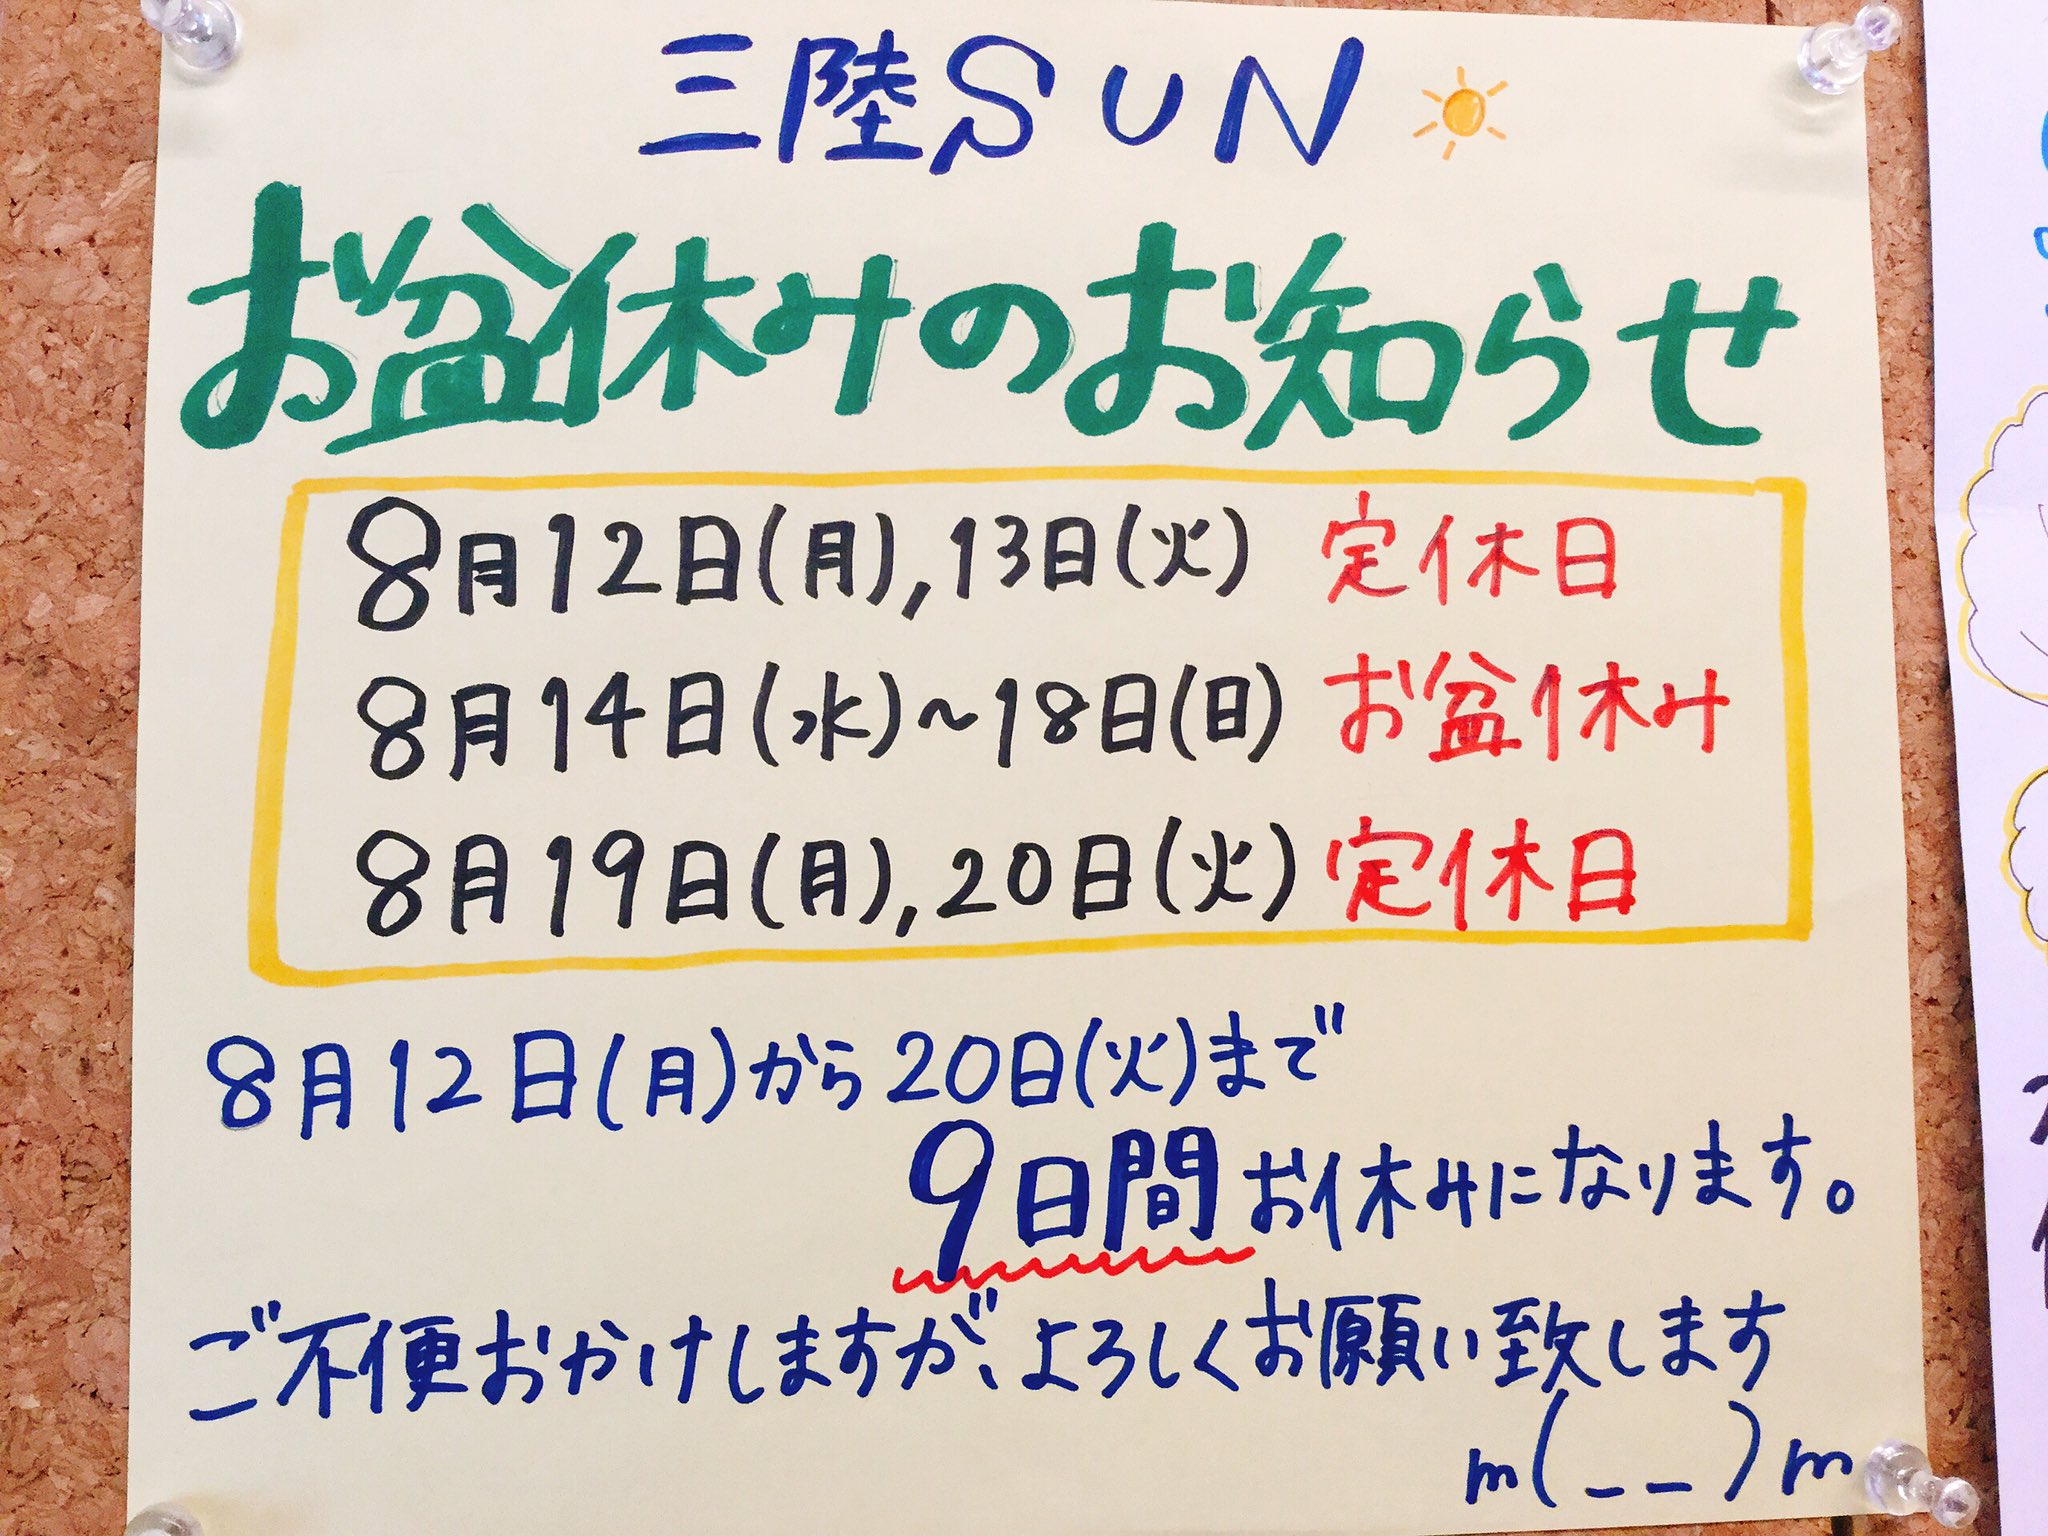 三陸SUN
お盆休みのお知らせ
8月12日(月),13日(火) 定休日
8月14日(水)~18日(日) お盆休み
8月19日(月),20日(火) 定休日
8月12日(月)から20日(火)まで
9日間お休みになります。
ご不便おかけしますが、よろしくお願い致します
m(__)m